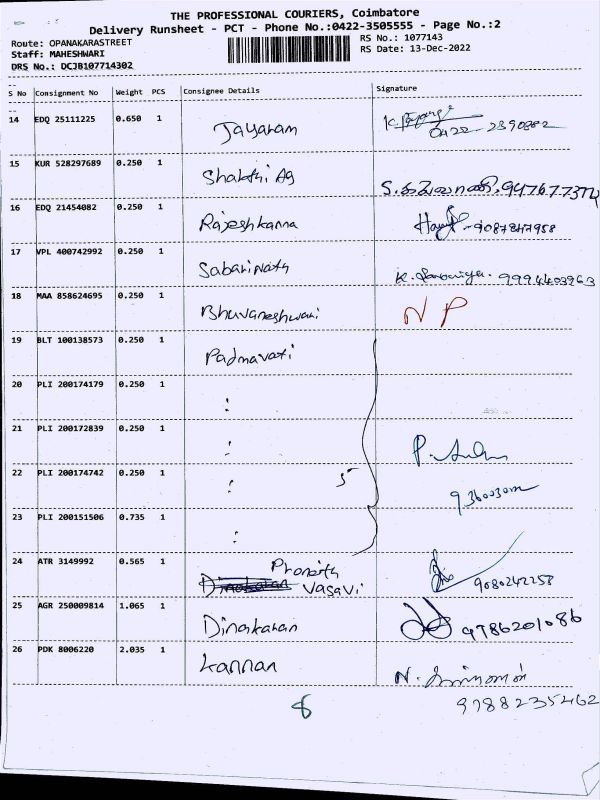 THE PROFESSIONAL COURIERS, Coimbatore
Delivery Runsheet - PCT - Phone No.:0422-3505555 - Page No.:2
Route: OPANAKARASTREET
RS No.: 1077143
Staff: MAHESHWARI
RS Date: 13-Dec-2022
DRS No.: DCJB107714302
S No Consignment No Weight PCS Consignee Details Signature
14 EDQ 25111225 0.650 1 Jayaram
0422-2390882
15 KUR 528297689 0.250 1 Shakthi Ag
16 EDQ 21454082 0.250 1 Rajeshkanna 9087847958
17 VPL 400742992 0.250 1 Sabarinath 9994403963
18 MAA 858624695 0.250 1 Bhuvaneshwari N P
19 BLT 100138573 0.250 1 Padmavati
20 PLI 200174179 0.250 1 :
21 PLI 200172839 0.250 1 :
22 PLI 200174742 0.250 1 : 5
23 PLI 200151506 0.735 1 :
24 ATR 3149992 0.565 1 Vasavi 9080242258
25 AGR 250009814 1.065 1 Dinakaran 9786201086
26 PDK 8006220 2.035 1 Kannan
9788235462
8